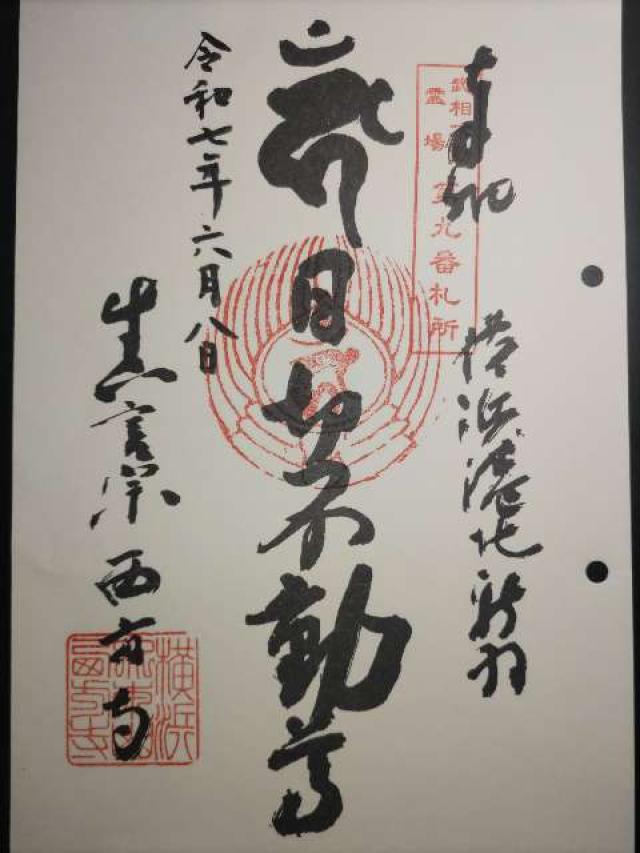 奉拝
武相
霊場 第九番札所
横浜港北新羽
日切不動尊
令和七年六月八日
真言宗 西方寺
横浜
西方寺